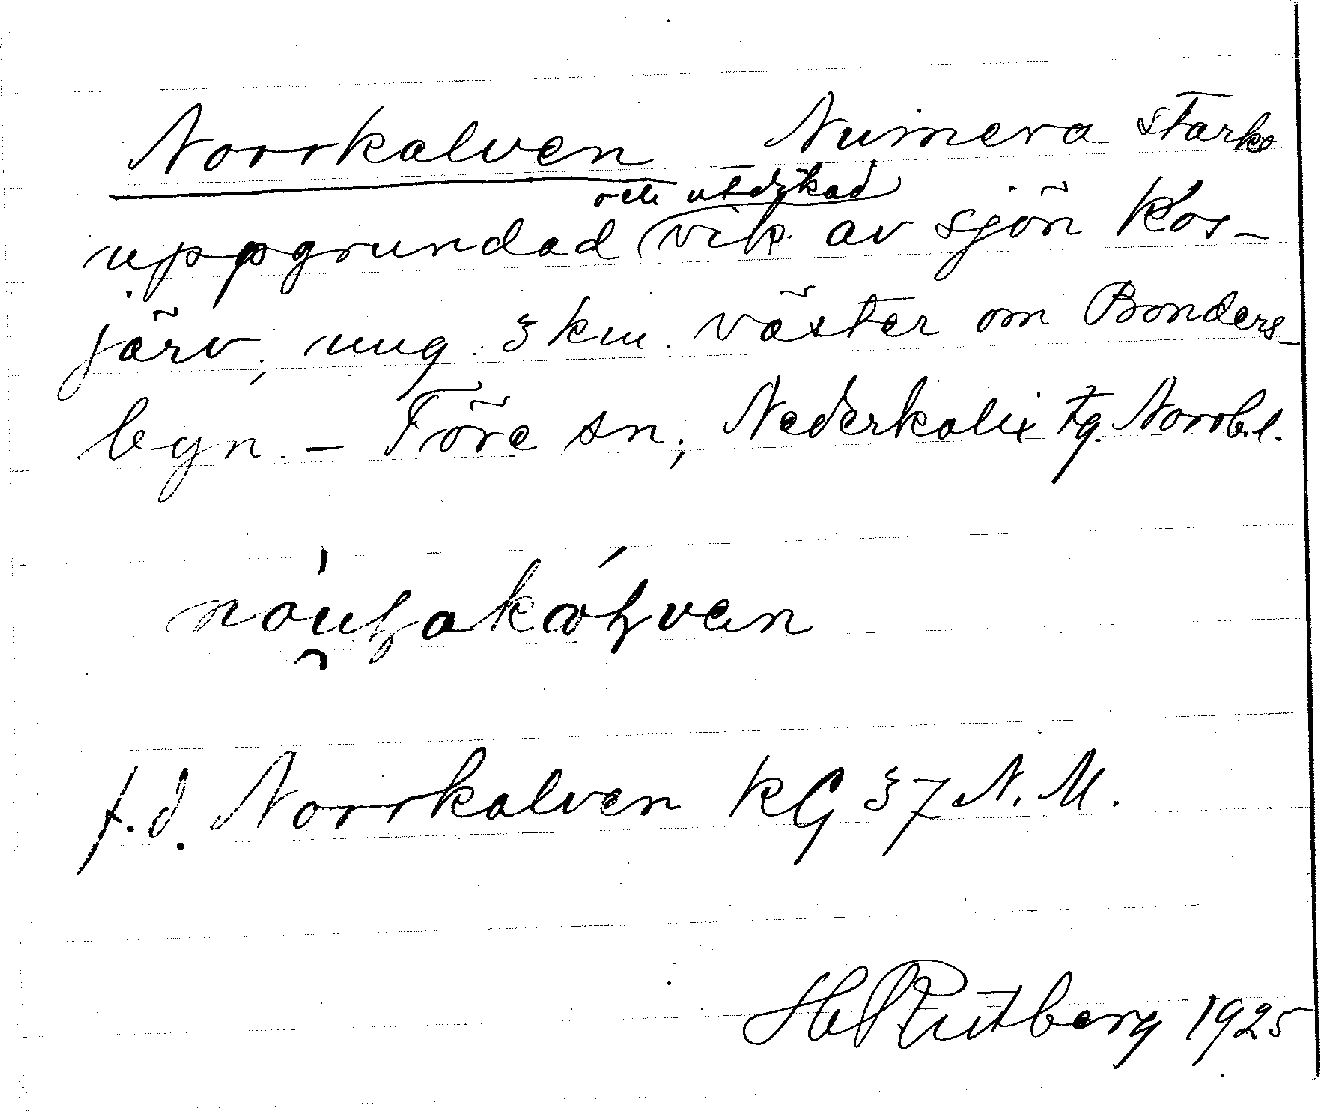 Norrkalven Numera starkt
uppgrundad och utdikad vik av sjön Kos-
järv, ung. 3 km. väster om Bonders-
byn. – Töre sn, Nederkalix tg. Norrb.l.
f.d. Norrkalven KG 37 N.M.
H Rutberg 1925